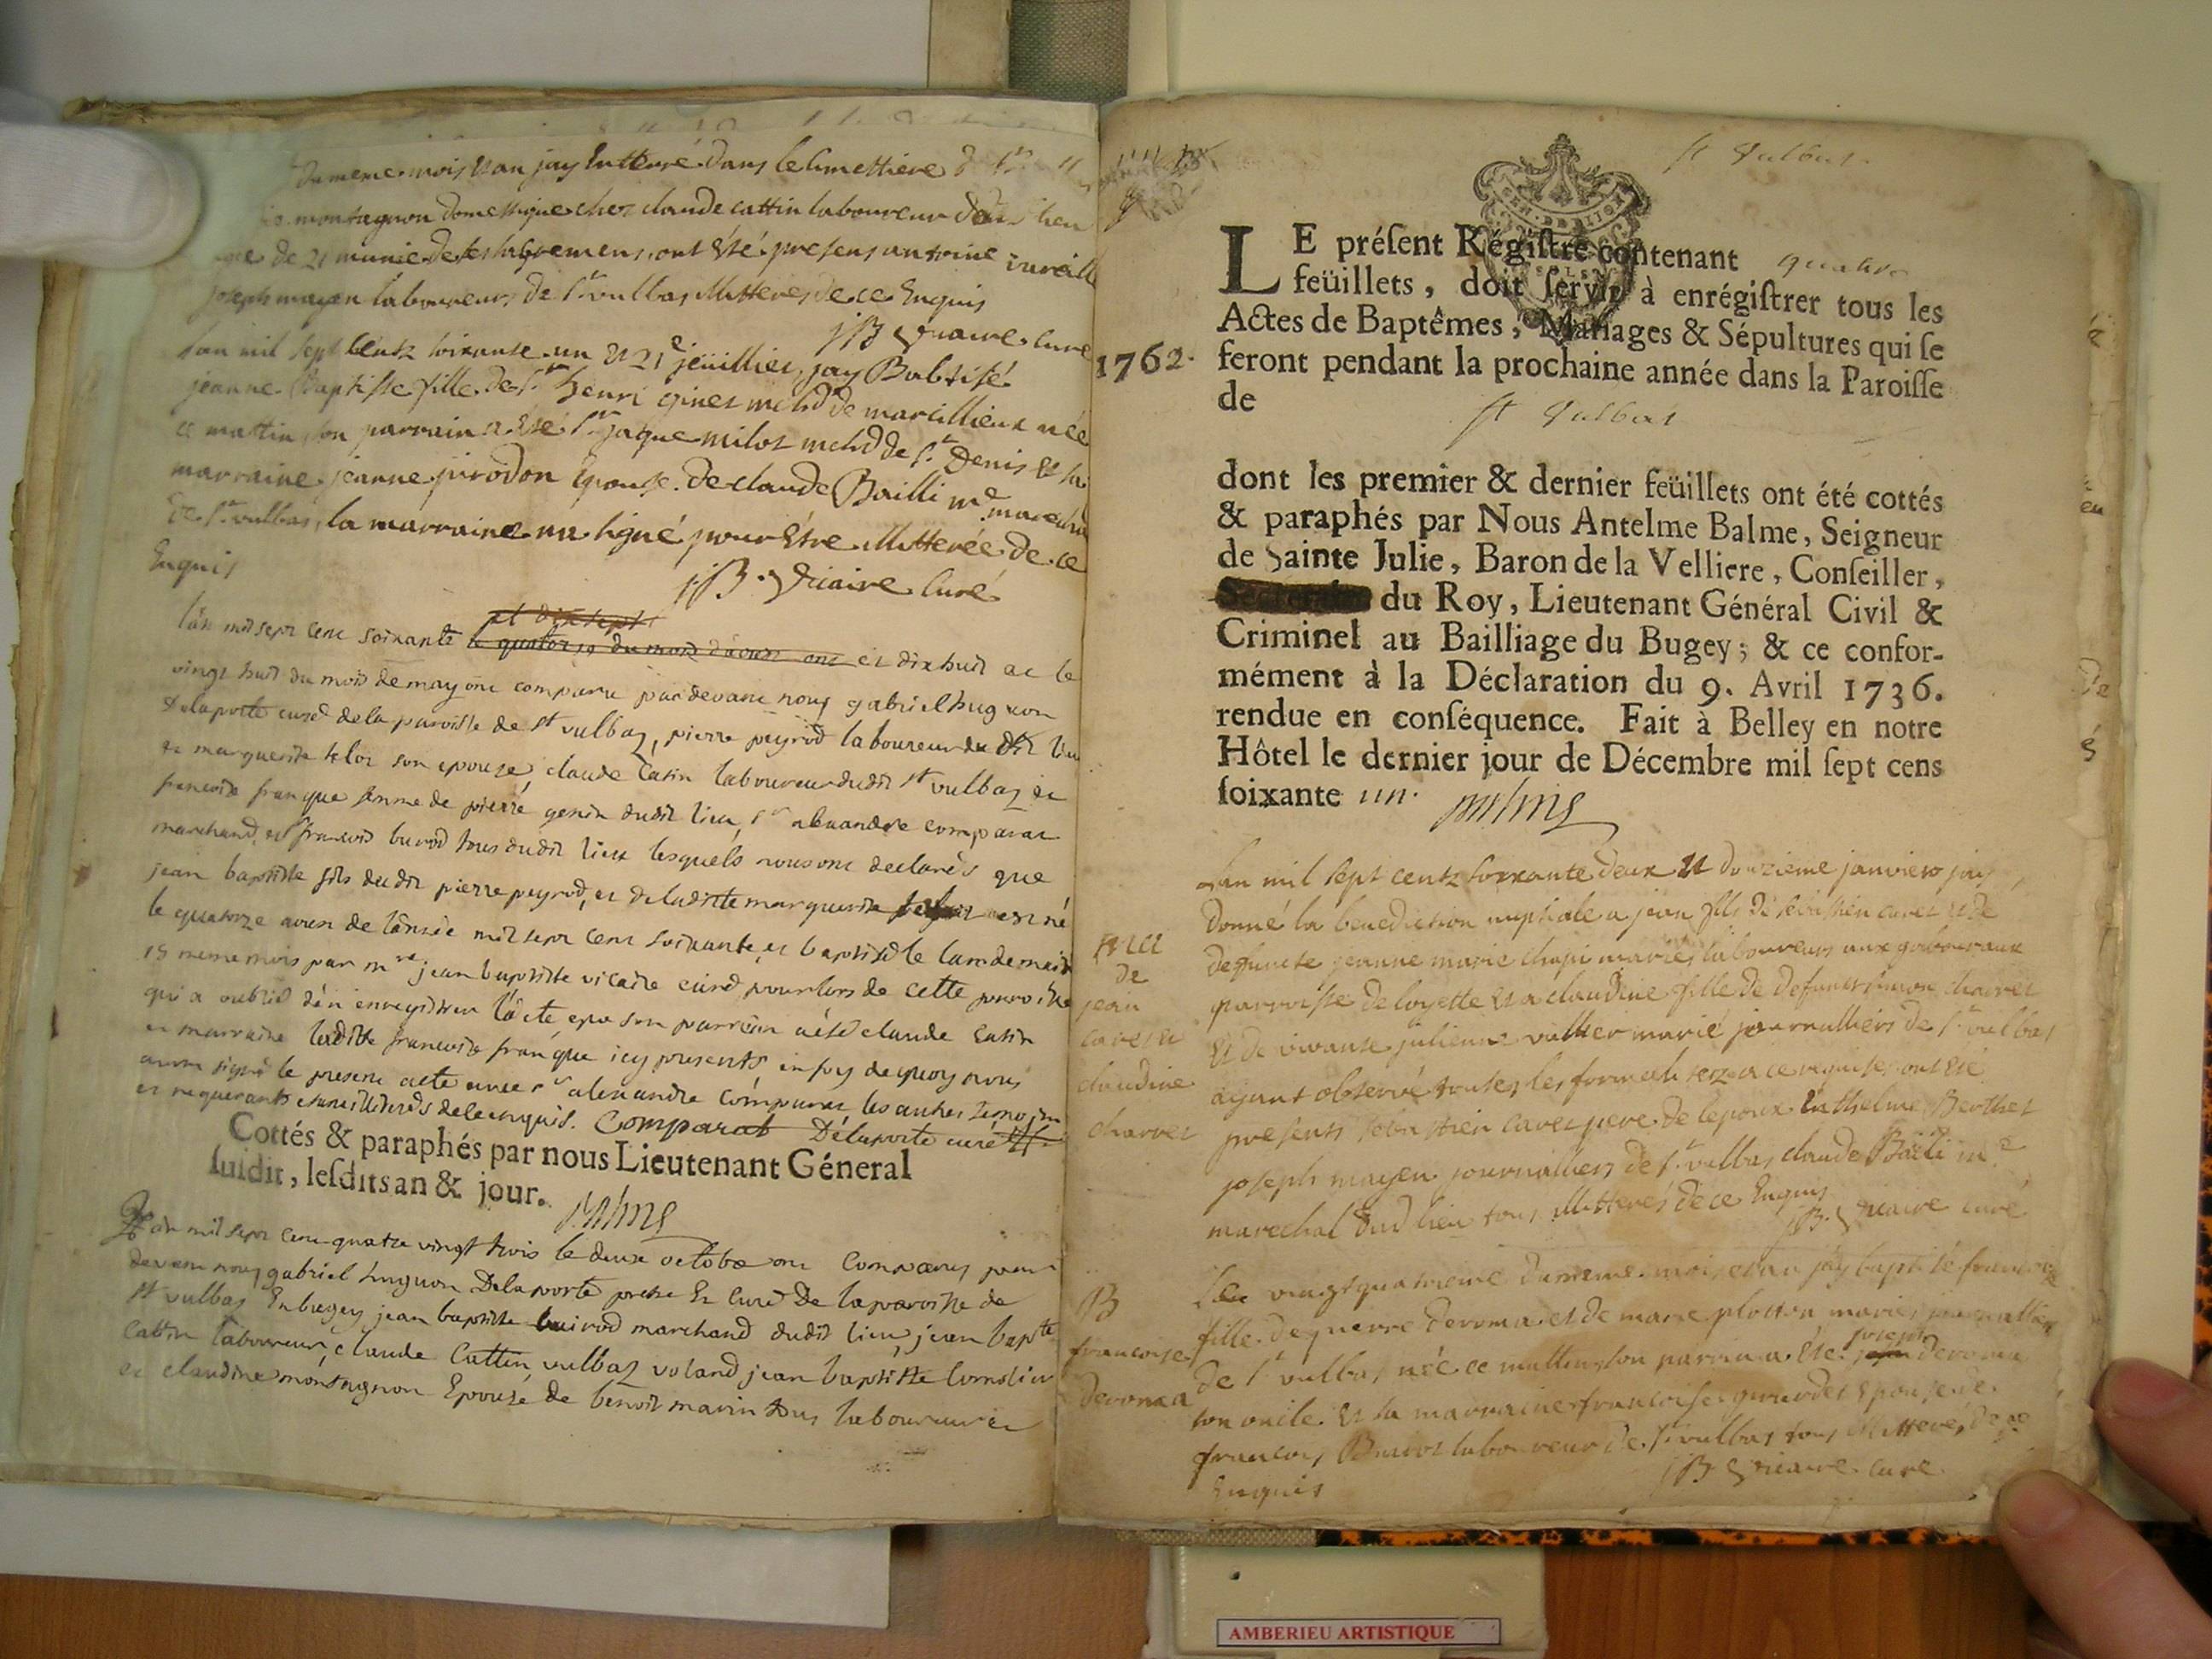 du meme mois et an jay Entterré dans le cimettiere
montagnon domestique chez claude cattin laboureur
de 21 munie de ses sacremens, ont Été presens antoine
joseph mayen laboureurs de St vulbas illitterés de ce Enquis
JB Vicaire Curé
lan mil sept centz soixante un et 21e jeuillier, jay Babtisé
jeanne Baptiste fille de Sr henri ginet mchd de marcillieux née
ce mattin, son parrain a Eté Sr jaque milot mchd de St Denis Et sa
marraine jeanne jirodon Epouse de claude Bailli me marechal
de St vulbas, la marraine na signé pour Étre illitterée de ce
Enquis
JB. Vicaire Curé
et dix sept
lan mil sept cent soixante le quatorze du mois d'aoust ont et dix huit et le
vingt huit du mois de may ont comparu par devant nous gabriel hugnon
Delaporte curé de la paroisse de St vulbaz, pierre peyrod laboureur du dit lieu
et marguerite son epouze, claude Catin laboureur dudit St vulbaz et
francoise franque femme de pierre genin dudit lieu, Sr alexandre comparat
marchand, et francois burod tous dudit lieu lesquels nous ont declarés que
jean baptiste fils dudit pierre peyrod, et de ladite marguerite est né
le quatorze aoust de lannée mil sept cent soixante, et baptisé le lendemain
15 meme mois par mre jean baptiste vicaire curé pour lors de cette paroisse
qui a oublié dên enregistrer l'acte que son parrain a été claude Catin
et marraine ladite francoise franque icy presents en foy de quoy nous
avons signé le present acte avec Sr alexandre comparat, les autres temoins
et requerants etants illiterés de ce enquis. Comparat Délaporte curé
Cottés & paraphés par nous Lieutenant Géneral
susdit, lesdits an & jour.
L'an mil sept cent quatre vingt trois le deux octobre ont Comparus par
devant nous gabriel hugnon Delaporte pretre Et Curé De la paroisse de
St vulbas En bugey jean baptiste buirod marchand dudit lieu, jean bapte
Cattin laboureur, claude Cattin, vulbaz voland jean baptiste Cornolier
et claudine montagnon Epouse de benoit marin tous laboureurs et
St Vulbas
LE présent Régistre contenant quatre
feüillets, doit servir à enrégistrer tous les
Actes de Baptêmes, Mariages & Sépultures qui se
1762. feront pendant la prochaine année dans la Paroisse
de St Vulbas
dont les premier & dernier feüillets ont été cottés
& paraphés par Nous Antelme Balme, Seigneur
de Sainte Julie, Baron de la Velliere, Conseiller,
du Roy, Lieutenant Général Civil &
Criminel au Bailliage du Bugey; & ce confor-
mément à la Déclaration du 9. Avril 1736.
rendue en conséquence. Fait à Belley en notre
Hôtel le dernier jour de Décembre mil sept cens
soixante un.
Lan mil sept centz soixante deux et douzieme janvier jay
donné la benediction nuptiale a jean fils de sebastien caret et de
deffuncte jeanne marie chapi mariés laboureurs aux gaboureaux
parroisse de loyette et a claudine fille de defunct simon charret
Et de vivante julienne vullier marié journalliers de St vulbas
aÿant observé toutes les formalitez a ce requises, ont Eté
presents sebastien caret pere de lepoux Enthelme Berthet
joseph mayen journalliers de St vulbas, claude Bailli me
marechal dud lieu tous illitterés de ce Enquis
JB. Vicaire curé
de
jean
caret et
claudine
charret
Le vingt quatrieme du meme mois et an jay baptisé francoise
fille de pierre deroma et de marie plotton mariés journalliers
de St vulbas née ce mattin, son parrain a Eté joseph deroma
son oncle Et sa marraine francoise girardet Epouse de
francois Buirot laboureur de St vulbas tous illitterés de ce
Enquis
JB Vicaire curé
B
francoise
deroma
AMBERIEU ARTISTIQUE